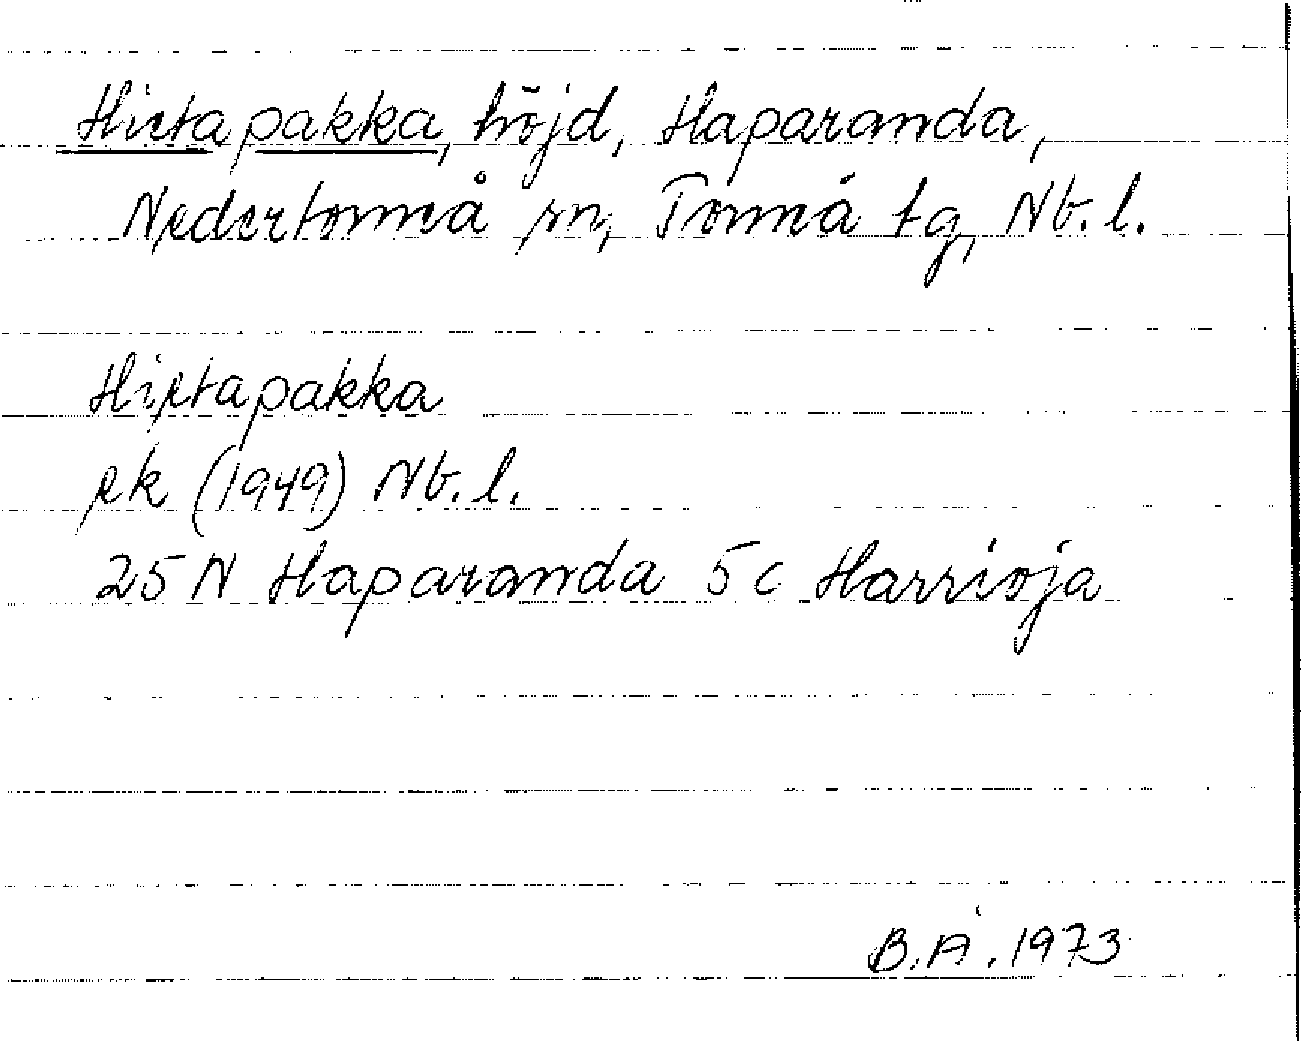 Hietapakka, höjd, Haparanda,
Nedertorneå sn, Torneå tg, Nb. l.
Hietapakka
ek (1949) Nb. l.
25 N Haparanda 5 c Harrioja
B.Å. 1973